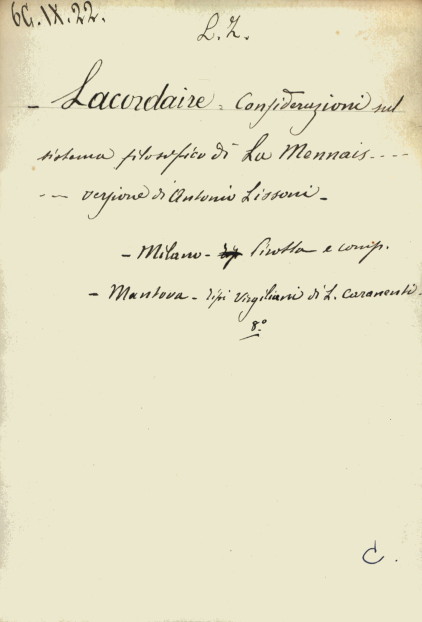 6G.IX.22.
L.Z.
- Lacordaire = Considerazioni sul
sistema filosofico di La Mennais ----
--- versione di Antonio Lissoni -
- Milano - Pirotta e comp.
- Mantova - tipi Virgiliani di L. Caranenti -
8.°
C.